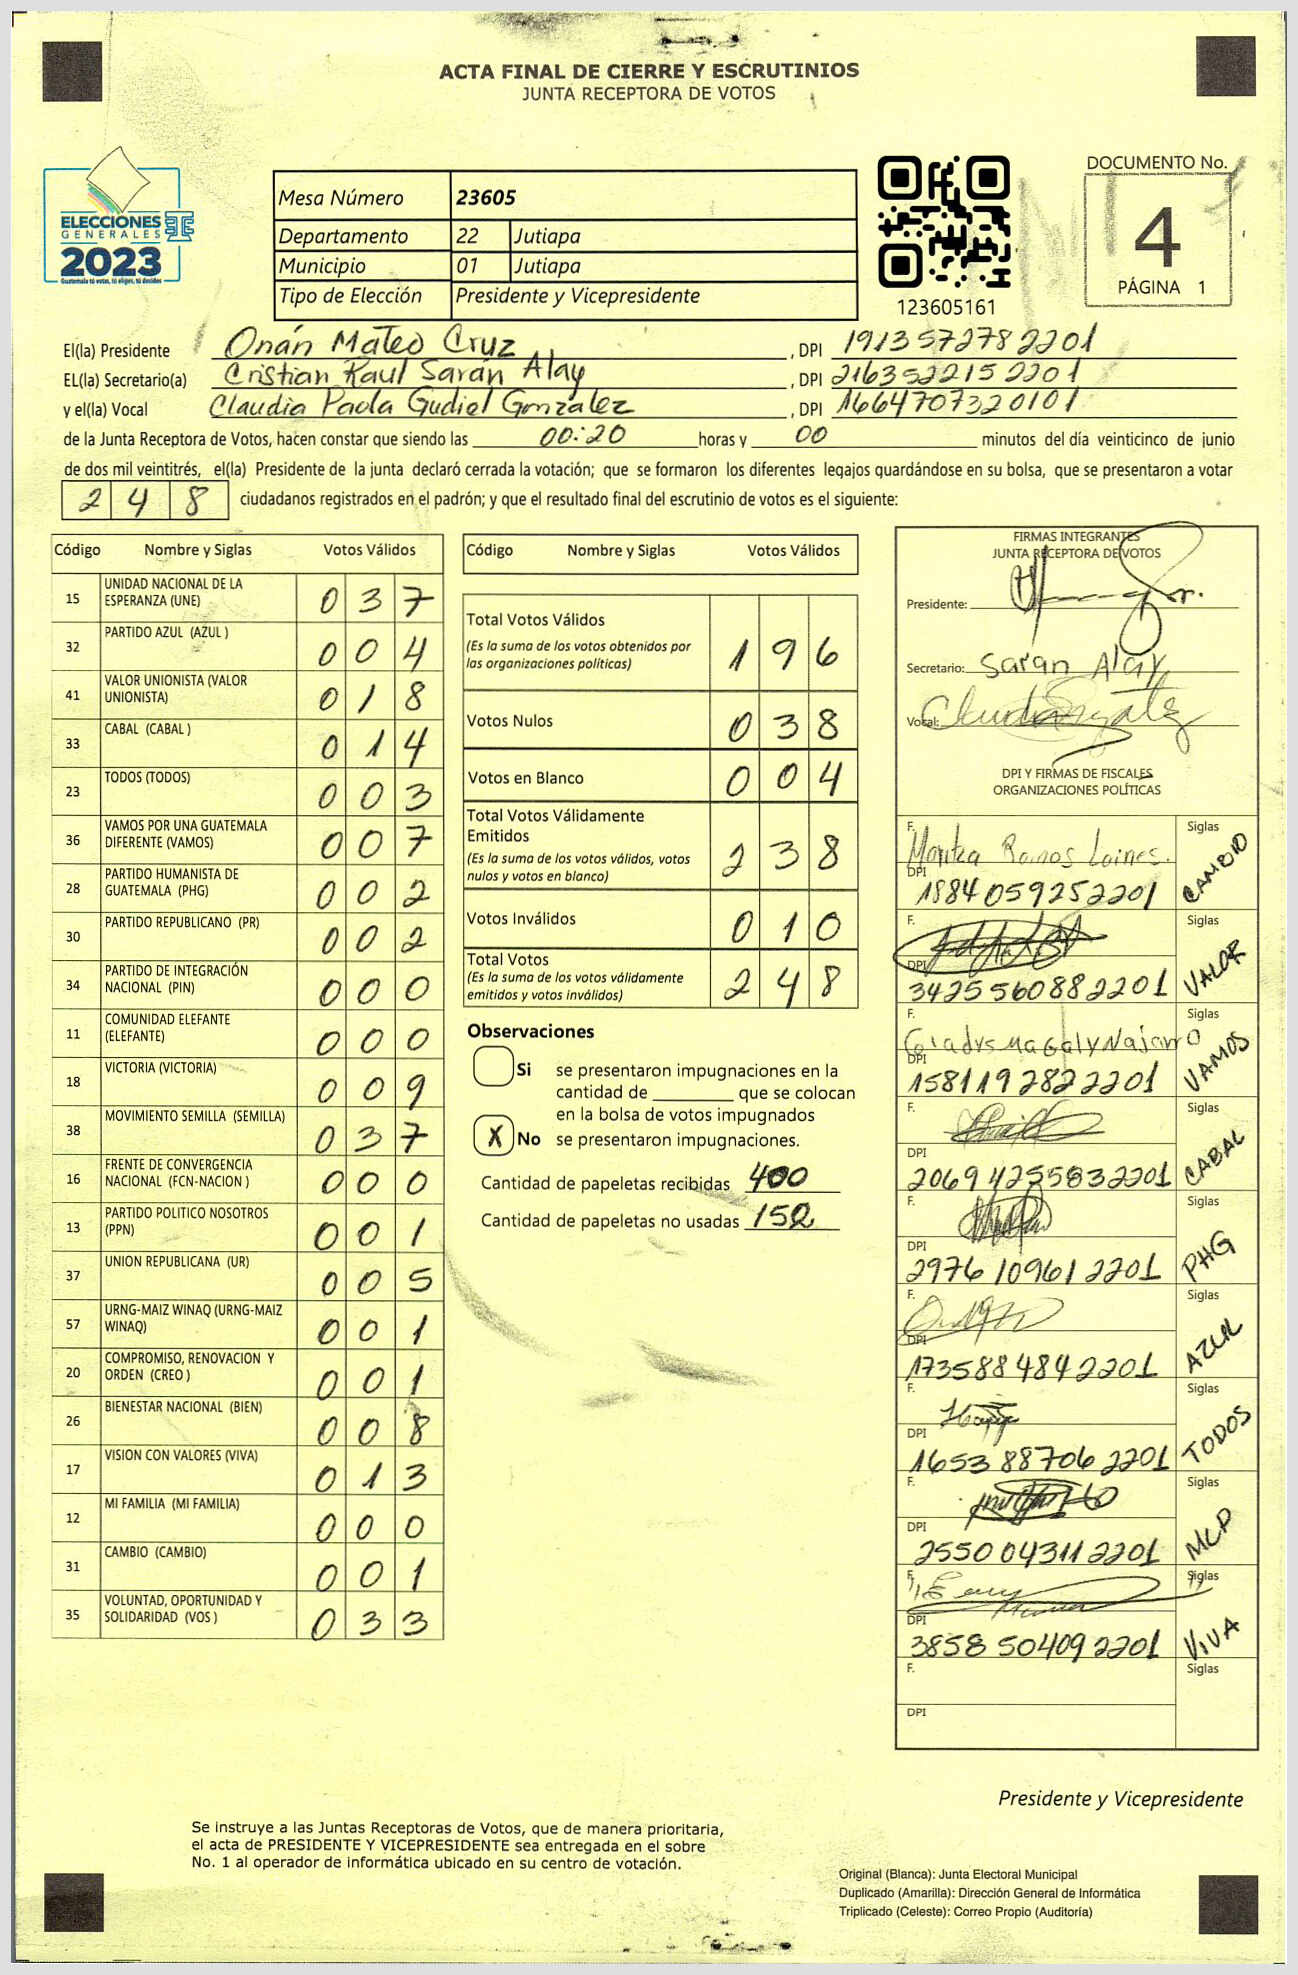 ACTA FINAL DE CIERRE Y ESCRUTINIOS
JUNTA RECEPTORA DE VOTOS
ELECCIONES
GENERALES
2023
Guatemala tú votas, tú eliges, tú decides
Mesa Número 23605
Departamento 22 Jutiapa
Municipio 01 Jutiapa
Tipo de Elección Presidente y Vicepresidente
123605161
DOCUMENTO No.
4
PÁGINA 1
El(la) Presidente Onán Mateo Cruz , DPI 1913572782201
EL(la) Secretario(a) Cristian Raul Sarán Alay , DPI 2163522152201
y el(la) Vocal Claudia Paola Gudiel González , DPI 1664707320101
de la Junta Receptora de Votos, hacen constar que siendo las 00:20 horas y 00 minutos del día veinticinco de junio
de dos mil veintitrés, el(la) Presidente de la junta declaró cerrada la votación; que se formaron los diferentes legajos guardándose en su bolsa, que se presentaron a votar
248 ciudadanos registrados en el padrón; y que el resultado final del escrutinio de votos es el siguiente:
Código Nombre y Siglas Votos Válidos
15 UNIDAD NACIONAL DE LA ESPERANZA (UNE) 037
32 PARTIDO AZUL (AZUL ) 004
41 VALOR UNIONISTA (VALOR UNIONISTA) 018
33 CABAL (CABAL ) 014
23 TODOS (TODOS) 003
36 VAMOS POR UNA GUATEMALA DIFERENTE (VAMOS) 007
28 PARTIDO HUMANISTA DE GUATEMALA (PHG) 002
30 PARTIDO REPUBLICANO (PR) 002
34 PARTIDO DE INTEGRACIÓN NACIONAL (PIN) 000
11 COMUNIDAD ELEFANTE (ELEFANTE) 000
18 VICTORIA (VICTORIA) 009
38 MOVIMIENTO SEMILLA (SEMILLA) 037
16 FRENTE DE CONVERGENCIA NACIONAL (FCN-NACION ) 000
13 PARTIDO POLITICO NOSOTROS (PPN) 001
37 UNION REPUBLICANA (UR) 005
57 URNG-MAIZ WINAQ (URNG-MAIZ WINAQ) 001
20 COMPROMISO, RENOVACION Y ORDEN (CREO ) 001
26 BIENESTAR NACIONAL (BIEN) 008
17 VISION CON VALORES (VIVA) 013
12 MI FAMILIA (MI FAMILIA) 000
31 CAMBIO (CAMBIO) 001
35 VOLUNTAD, OPORTUNIDAD Y SOLIDARIDAD (VOS ) 033
Código Nombre y Siglas Votos Válidos
Total Votos Válidos 196
(Es la suma de los votos obtenidos por
las organizaciones políticas)
Votos Nulos 038
Votos en Blanco 004
Total Votos Válidamente
Emitidos 238
(Es la suma de los votos válidos, votos
nulos y votos en blanco)
Votos Inválidos 010
Total Votos 248
(Es la suma de los votos válidamente
emitidos y votos inválidos)
Observaciones
Si se presentaron impugnaciones en la
cantidad de ________ que se colocan
en la bolsa de votos impugnados
X No se presentaron impugnaciones.
Cantidad de papeletas recibidas 400
Cantidad de papeletas no usadas 152
FIRMAS INTEGRANTES
JUNTA RECEPTORA DE VOTOS
Presidente:
Secretario: Sarán Alay
Vocal:
DPI Y FIRMAS DE FISCALES
ORGANIZACIONES POLÍTICAS
F. Maritza Ramos Laines. Siglas CAMBIO
DPI 1884059252201
F. Siglas VALOR
DPI 3425560882201
F. Gladys Magaly Najarro Siglas VAMOS
DPI 1581192822201
F. Siglas CABAL
DPI 20694255832201
F. Siglas PHG
DPI 2976109612201
F. Siglas AZUL
DPI 1735884842201
F. Siglas TODOS
DPI 1653887062201
F. Siglas MLP
DPI 2550043112201
F. Siglas VIVA
DPI 3858504092201
F. Siglas
DPI
Presidente y Vicepresidente
Se instruye a las Juntas Receptoras de Votos, que de manera prioritaria,
el acta de PRESIDENTE Y VICEPRESIDENTE sea entregada en el sobre
No. 1 al operador de informática ubicado en su centro de votación.
Original (Blanca): Junta Electoral Municipal
Duplicado (Amarilla): Dirección General de Informática
Triplicado (Celeste): Correo Propio (Auditoría)